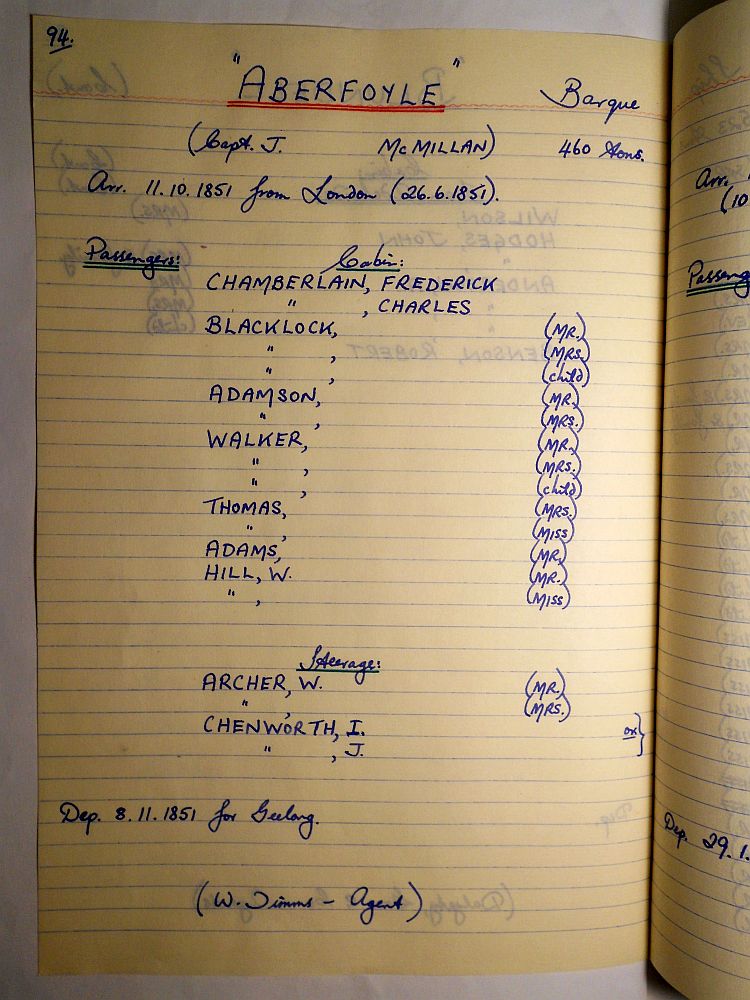 94.
"ABERFOYLE" Barque
(Capt. J. McMILLAN) 460 tons.
Arr. 11.10.1851 from London (26.6.1851).
Passengers: Cabin:
CHAMBERLAIN, FREDERICK
" , CHARLES
BLACKLOCK, (MR.)
" , (MRS.)
" , (child)
ADAMSON, (MR.)
" , (MRS.)
WALKER, (MR.)
" , (MRS.)
" , (child)
THOMAS, (MRS.)
" , (MISS)
ADAMS, (MR.)
HILL, W. (MR.)
" , (MISS)
Steerage:
ARCHER, W. (MR.)
" , (MRS.)
CHENWORTH, I. or }
" , J.
Dep. 8.11.1851 for Geelong.
(W. Timms - Agent)
Arr.
(10
Dep. 29.1.